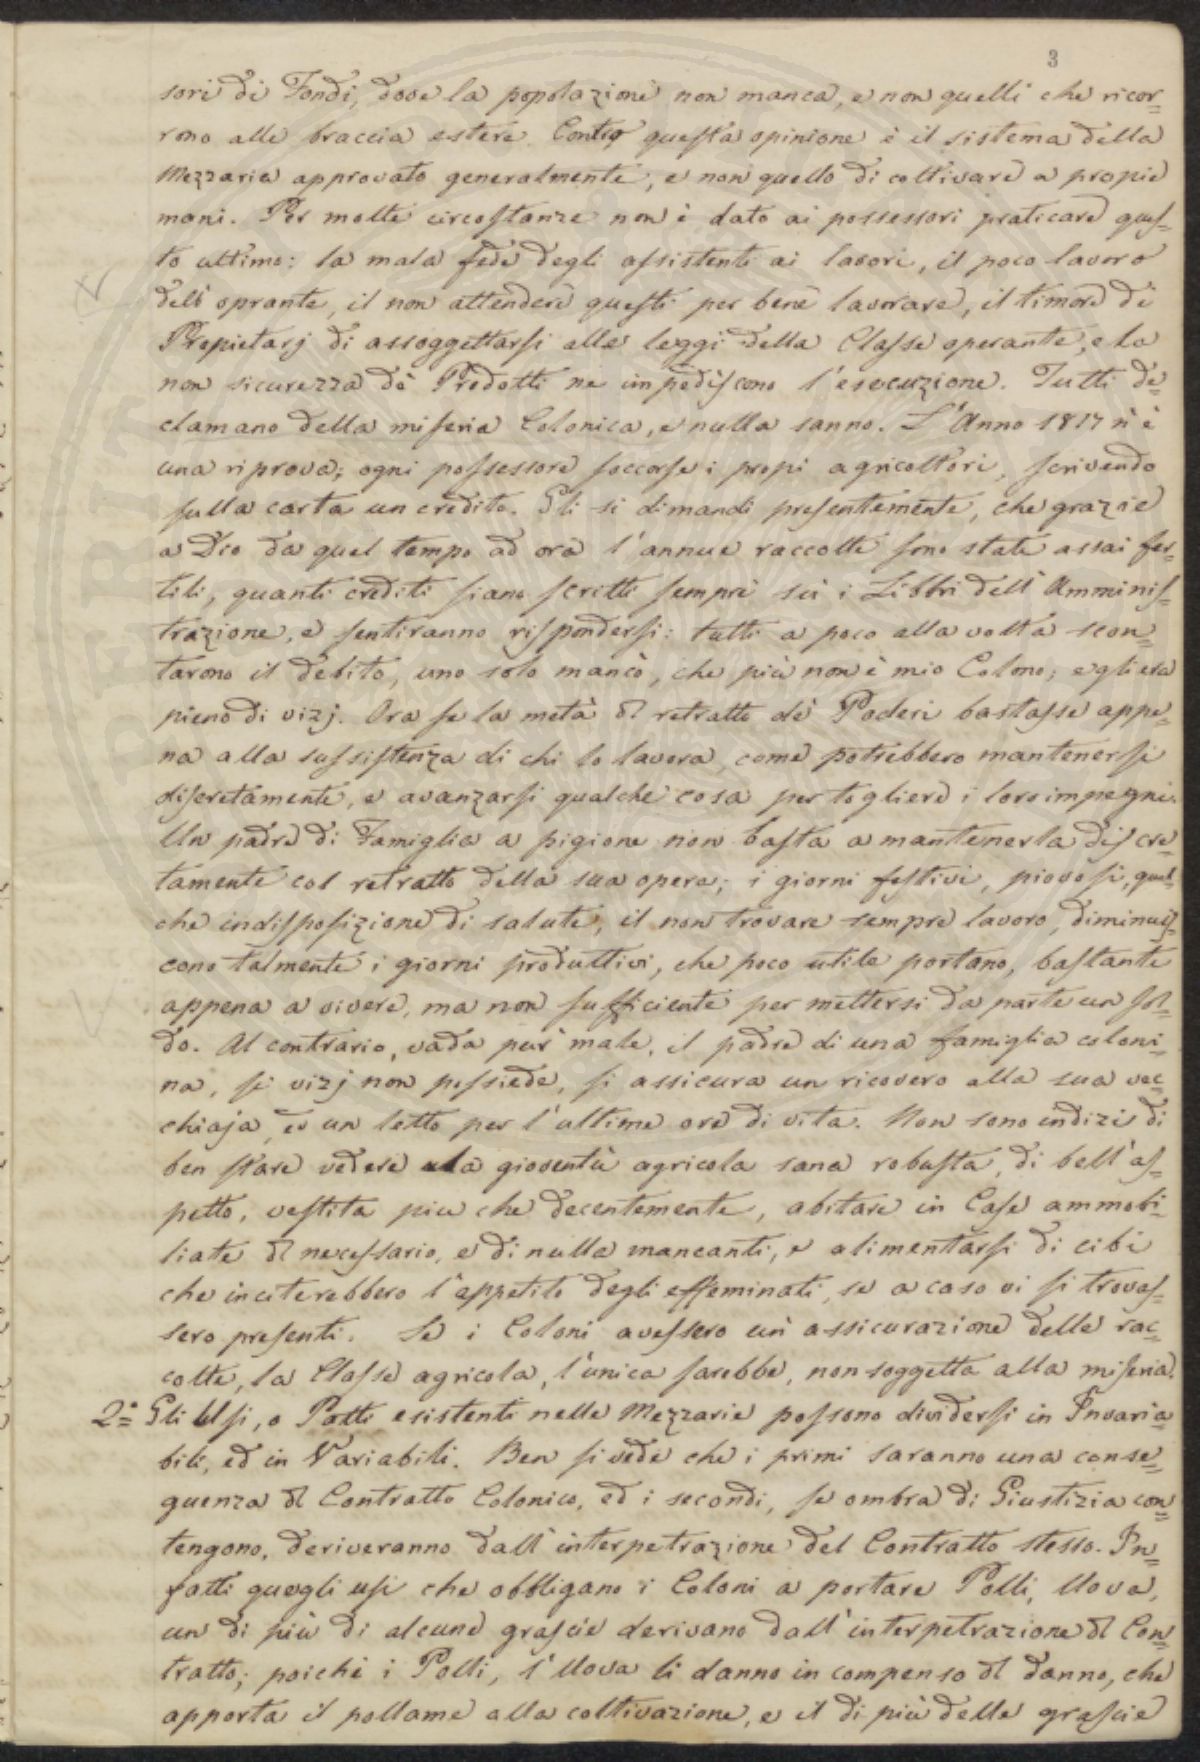 3
sori di Fondi, dove la popolazione non manca, e non quelli che ricor=
rono alle braccia estere. Contro questa opinione è il sistema della
Mezzaria approvato generalmente, e non quello di coltivare a propie
mani. Per molte circostanze non è dato ai possessori praticare ques=
to ultimo: la mala fede degli assistenti ai lavori, il poco lavoro
dell' oprante, il non attendere questi per bene lavorare, il timore di
Propietarj di assoggettarsi alle leggi della Classe operante, e la
non sicurezza dè Prodotti ne impediscono l'esecuzione. Tutti de=
clamano della miseria Colonica, e nulla sanno. L'Anno 1817 n'è
una riprova; ogni possessore soccorse i propi agricoltori, scrivendo
sulla carta un credito. Gli si dimandi presentemente, che grazie
a Dio da quel tempo ad ora l'annue raccolte sono state assai fer=
tili, quanti crediti siano scritti sempre sù i Libbri dell' Amminis=
trazione, e sentiranno rispondersi: tutti a poco alla volta scon=
tarono il debito, uno solo mancò, che più non è mio Colono; egli era
pieno di vizj. Ora se la metà dl retratto dè Poderi bastasse appe=
na alla sussistenza di chi lo lavora, come potrebbero mantenersi
discretamente, e avanzarsi qualche cosa per togliere i loro impegni.
Un padre di Famiglia a pigione non basta a mantenerla discre=
tamente col retratto della sua opera; i giorni festivi, piovosi, qual=
che indisposizione di salute, il non trovare sempre lavoro, diminuis=
cono talmente i giorni produttivi, che poco utile portano, bastante
appena a vivere, ma non sufficiente per mettersi da parte un sol=
do. Al contrario, vada pur male, il padre di una famiglia coloni=
na, se vizj non possiede, si assicura un ricovero alla sua vec=
chiaja, ed un letto per l'ultime ore di vita. Non sono indizi di
ben stare vedere la gioventù agricola sana robusta, di bell'as=
petto, vestita più che decentemente, abitare in Case ammobi=
liate dl necessario, e di nulla mancanti, e alimentarsi di cibi
che inciterebbero l'appetito degli effeminati, se a caso vi si trovas=
sero presenti. Se i Coloni avessero un' assicurazione delle rac=
colte, la Classe agricola, l'unica sarebbe, non soggetta alla miseria.
2.° Gli Usi, o Patti esistenti nelle Mezzarie possono dividersi in Invaria=
bili, ed in Variabili. Ben si vede che i primi saranno una conse=
guenza dl Contratto Colonico, ed i secondi, se ombra di Giustizia con=
tengono, deriveranno dall' interpetrazione del Contratto stesso. In=
fatti quegli usi che obbligano i Coloni a portare Polli, Uova,
un di più di alcune grascie derivano dall' interpetrazione dl Con=
tratto; poichè i Polli, l'Uova li danno in compenso dl danno, che
apporta il pollame alla coltivazione, e il di più delle grascie